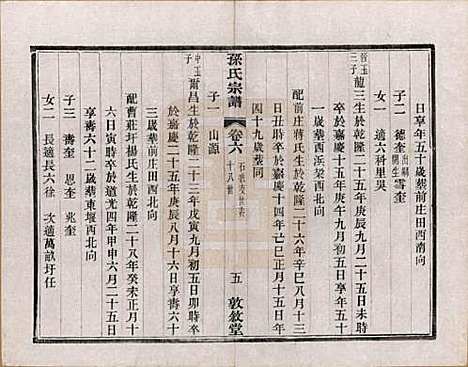 日享年五十歲葬前庄田西湳向
子二 德奎出嗣開生 雪奎
女一 適六科里吳
啓玉三子 龍三生於乾隆二十五年庚辰九月二十五日未時
卒於嘉慶十五年庚午九月初五日享年五十
一歲葬西浜梁西北向
配前庄蔣氏生於乾隆二十六年辛巳八月初六
日丑時卒於嘉慶十四年己巳正月十五日
四十九歲葬同
子一 山源
孫氏宗譜 卷六 十八世 五 敦敘堂
中玉子 爾昌生於乾隆二十三年戊寅九月初五日卯時卒
於嘉慶二十五年庚辰八月十六日享壽六十
三歲葬前庄田西北向
配曹莊圩楊氏生於乾隆二十八年癸未正月十
六日寅時卒於道光四年甲申六月二十五日
享壽六十二歲葬東堰西北向
子三 壽奎 恩奎 兆奎
女二 長適長六徐 次適萬畝圩任